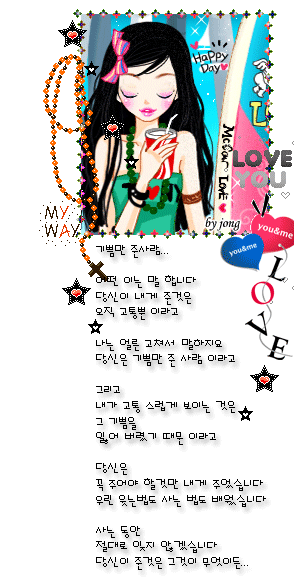 Happy
Day
Me & You Love
LOVE
YOU
MY
WAY
by jong
you&me
you&me
LOVE
기쁨만 준사람...
어떤 이는 말 합니다
당신이 내게 준것은
오직 고통뿐 이라고
나는 얼른 고쳐서 말하지요
당신은 기쁨만 준 사람 이라고
그리고
내가 고통 스럽게 보이는 것은
그 기쁨을
잃어 버렸기 때문 이라고
당신은
꼭 주어야 할것만 내게 주었습니다
우린 잊는법도 사는 법도 배웠습니다
사는 동안
절대로 잊지 않겠습니다
당신이 준것은 그것이 무엇이든...